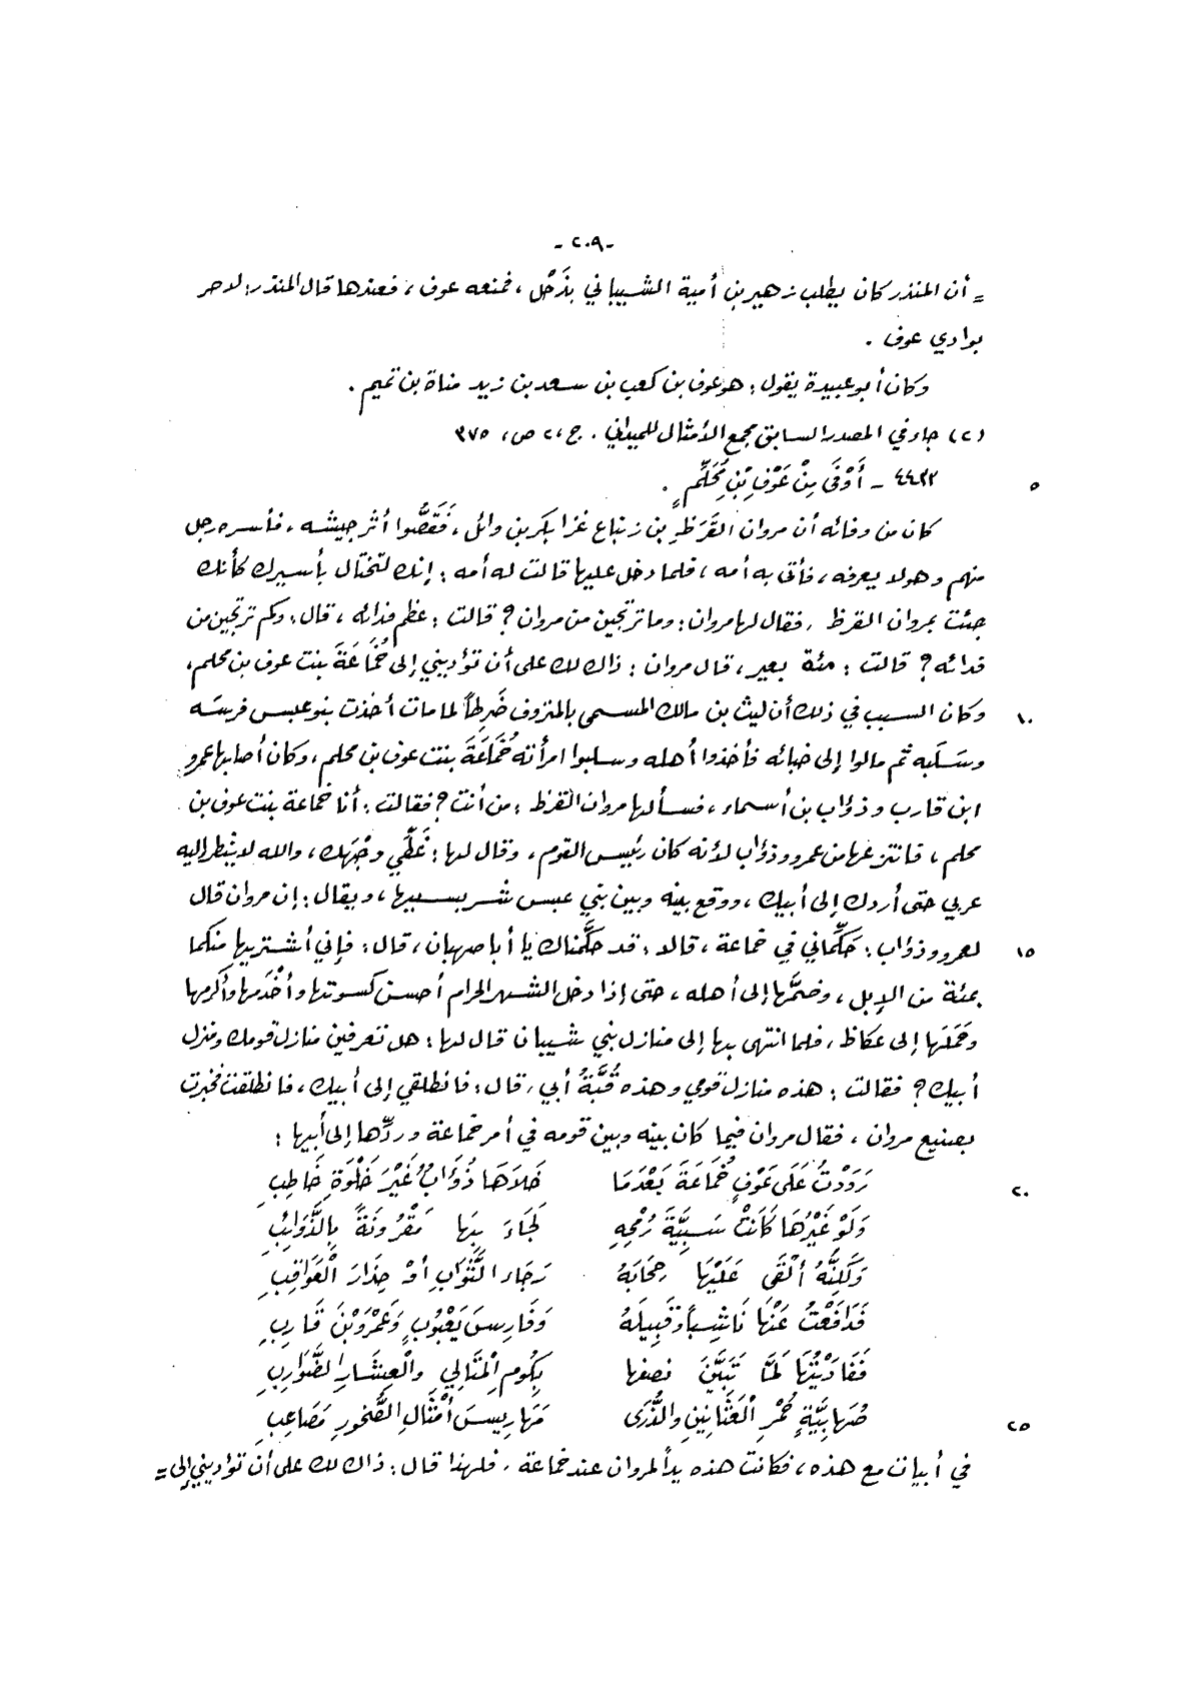 -٢٠٩-
= أن المنذر كان يطلب زهير بن أمية الشيباني بذَحْل ، فمنعه عوف ، فعندها قال المنذر : لا حر
بوادي عوف .
وكان أبو عبيدة يقول : هو عوف بن كعب بن سعد بن زيد مناة بن تميم .
(٢) جاء في المصدر السابق مجمع الأمثال للميداني . ج ، ٢ ص ، ٣٧٥
٥ ٤٤٣٣ - أَوْفَى مِنْ عَوْفِ بْنِ مُحَلِّمٍ .
كان من وفائه أن مروان القَرَظِ بن زنباع غزا بكر بن وائل ، فَقَصُّوا أثر جيشه ، فأسره رجل
منهم وهو لا يعرفه ، فأتى به أمه ، فلما دخل عليها قالت له أمه : إنك لتختال بأسيرك كأنك
جئت بمروان القرظ ، فقال لها مروان : وما ترتجين من مروان ؟ قالت : عظم فدائه ، قال : وكم ترتجين من
فدائه ؟ قالت : مئة بعير ، قال مروان : ذاك لك على أن تؤديني إلى خُمَاعَةَ بنت عوف بن محلم ،
١٠ وكان السبب في ذلك أن ليث بن مالك المسمى بالمنزوف ضَرِطاً لما مات أخذت بنو عبس فرسَه
وسَلَبه ثم مالوا إلى خبائه فأخذوا أهله وسلبوا امرأته خُمَاعَةَ بنت عوف بن محلم ، وكان أصابها عمرو
ابن قارب وذؤاب بن أسماء ، فسألها مروان القرظ : من أنت ؟ فقالت : أنا خماعة بنت عوف بن
محلم ، فانتزعها من عمرو وذؤاب لأنه كان رئيس القوم ، وقال لها : غَطِّي وجْهَك ، والله لا ينظر إليه
عربي حتى أردك إلى أبيك ، ووقع بينه وبين بني عبس شر بسببها ، ويقال : إن مروان قال
١٥ لعمرو وذؤاب : حَكِّماني في خماعة ، قالا : قد حكَّمناك يا أبا صهبان ، قال : فإني أشتريها منكما
بمئة من الإبل ، وضمَّها إلى أهله ، حتى إذا دخل الشهر الحرام أحسن كسوتها وأخْدَمها وأكرمها
وحَمَلَها إلى عكاظ ، فلما انتهى بها إلى منازل بني شيبان قال لها : هل تعرفين منازل قومك ومنزل
أبيك ؟ فقالت : هذه منازل قومي وهذه قُبَّةُ أبي ، قال : فانطلقي إلى أبيك ، فانطلقت فخبرت
بصنيع مروان ، فقال مروان فيما كان بينه وبين قومه في أمر خماعة وردِّها إلى أبيها :
٢٠ رَدَدْتُ عَلَى عَوْفٍ خُمَاعَةَ بَعْدَمَا خَلاَهَا ذُؤَابٌ غَيْرَ خَلْوَةِ خَاطِبِ
وَلَوْ غَيْرُهَا كَانَتْ سَبِيَّةَ رُمْحِهِ لَجَاءَ بِهَا مَقْرُونَةً بِالذَّوَائِبِ
وَلَكِنَّهُ أَلْقَى عَلَيْهَا حِجَابَهُ رَجَاءَ الثَّوَابِ أوْ حِذَارَ الْعَوَاقِبِ
فَدَافَعْتُ عَنْهَا نَاشِباً وَقَبِيلَهُ وَفَارِسَ يَعْبُوبٍ وَعَمْرَو بْنَ قَارِبِ
فَفَادَيْتُهَا لَمَّا تَبَيَّنَ نصفها بِكُومِ الْمَتَالِي والْعِشَارِ الضَّوَارِبِ
٢٥ صُهَابِيَّةٍ حُمْرِ الْعَثَانِينِ والذُّرَى مَهَارِيسَ أَمْثَالِ الصُّخُورِ مَصَاعِبِ
في أبيات مع هذه ، فكانت هذه يداً لمروان عند خماعة . فلهذا قال : ذاك لك على أن تؤديني إلى =